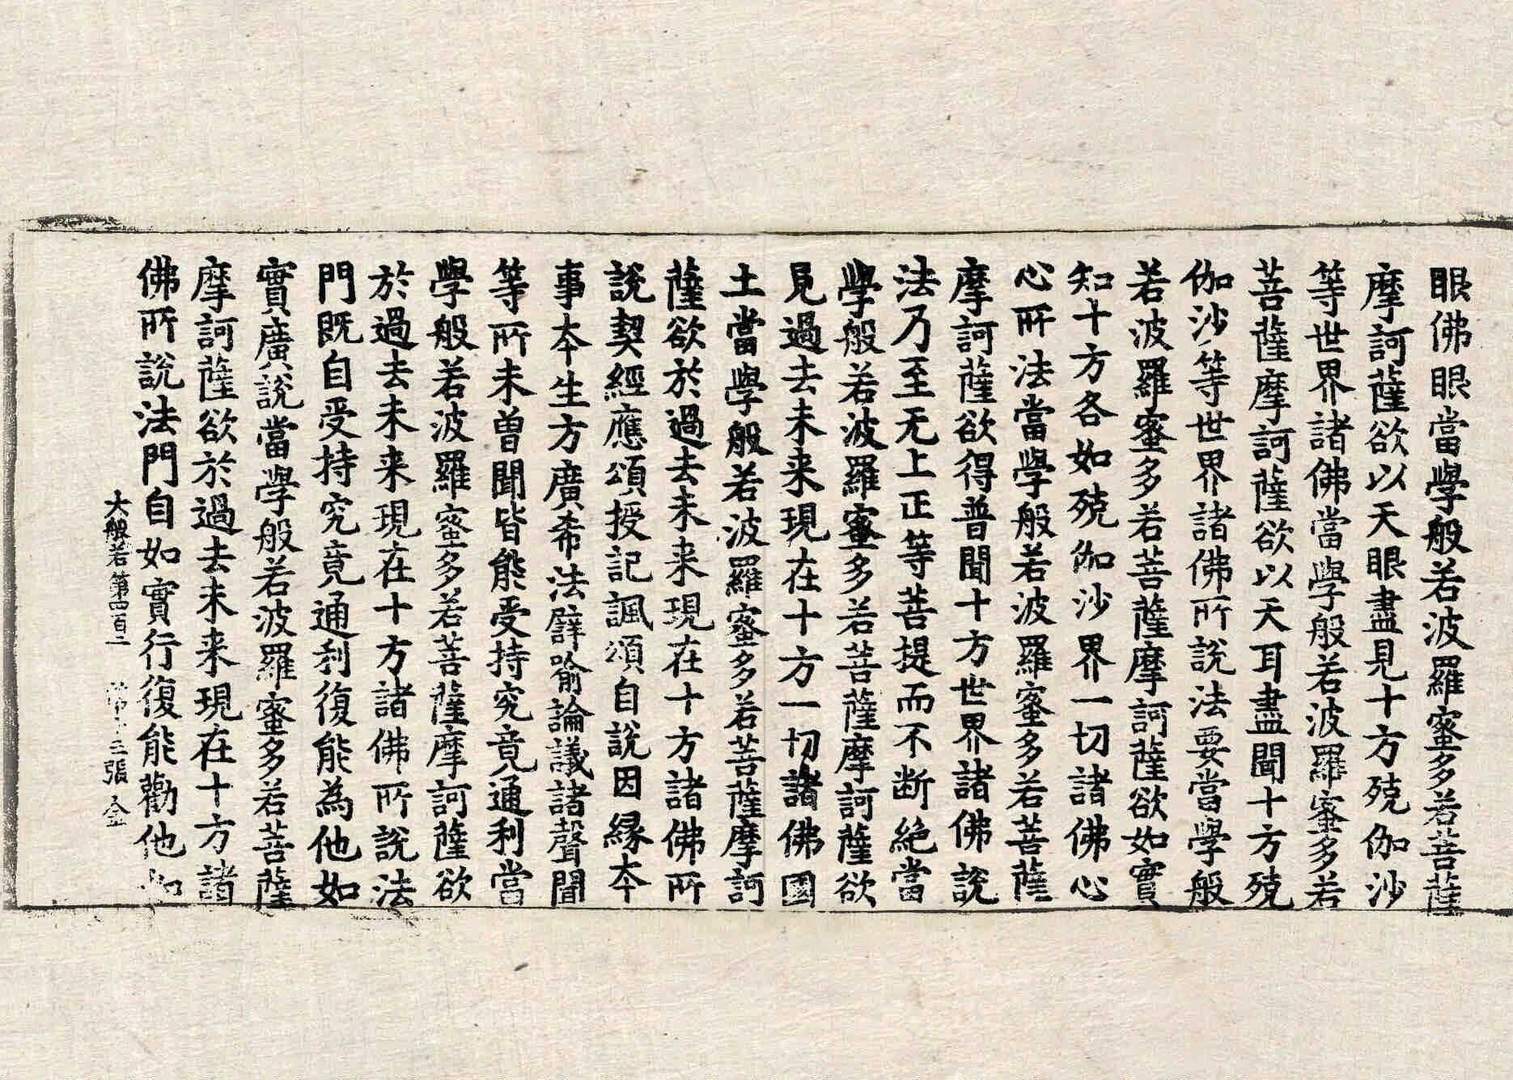 眼佛眼當學般若波羅蜜多若菩薩
摩訶薩欲以天眼盡見十方殑伽沙
等世界諸佛當學般若波羅蜜多若
菩薩摩訶薩欲以天耳盡聞十方殑
伽沙等世界諸佛所說法要當學般
若波羅蜜多若菩薩摩訶薩欲如實
知十方各如殑伽沙界一切諸佛心
心所法當學般若波羅蜜多若菩薩
摩訶薩欲得普聞十方世界諸佛說
法乃至无上正等菩提而不断絶當
學般若波羅蜜多若菩薩摩訶薩欲
見過去未来現在十方一切諸佛國
土當學般若波羅蜜多若菩薩摩訶
薩欲於過去未来現在十方諸佛所
說契經應頌授記諷頌自說因縁夲
事夲生方廣希法譬喻論議諸聲聞
等所未曾聞皆能受持究竟通利當
學般若波羅蜜多若菩薩摩訶薩欲
於過去未来現在十方諸佛所說法
門既自受持究竟通利復能為他如
實廣說當學般若波羅蜜多若菩薩
摩訶薩欲於過去未来現在十方諸
佛所說法門自如實行復能勸他如
大般若第四百二 第十三張 金